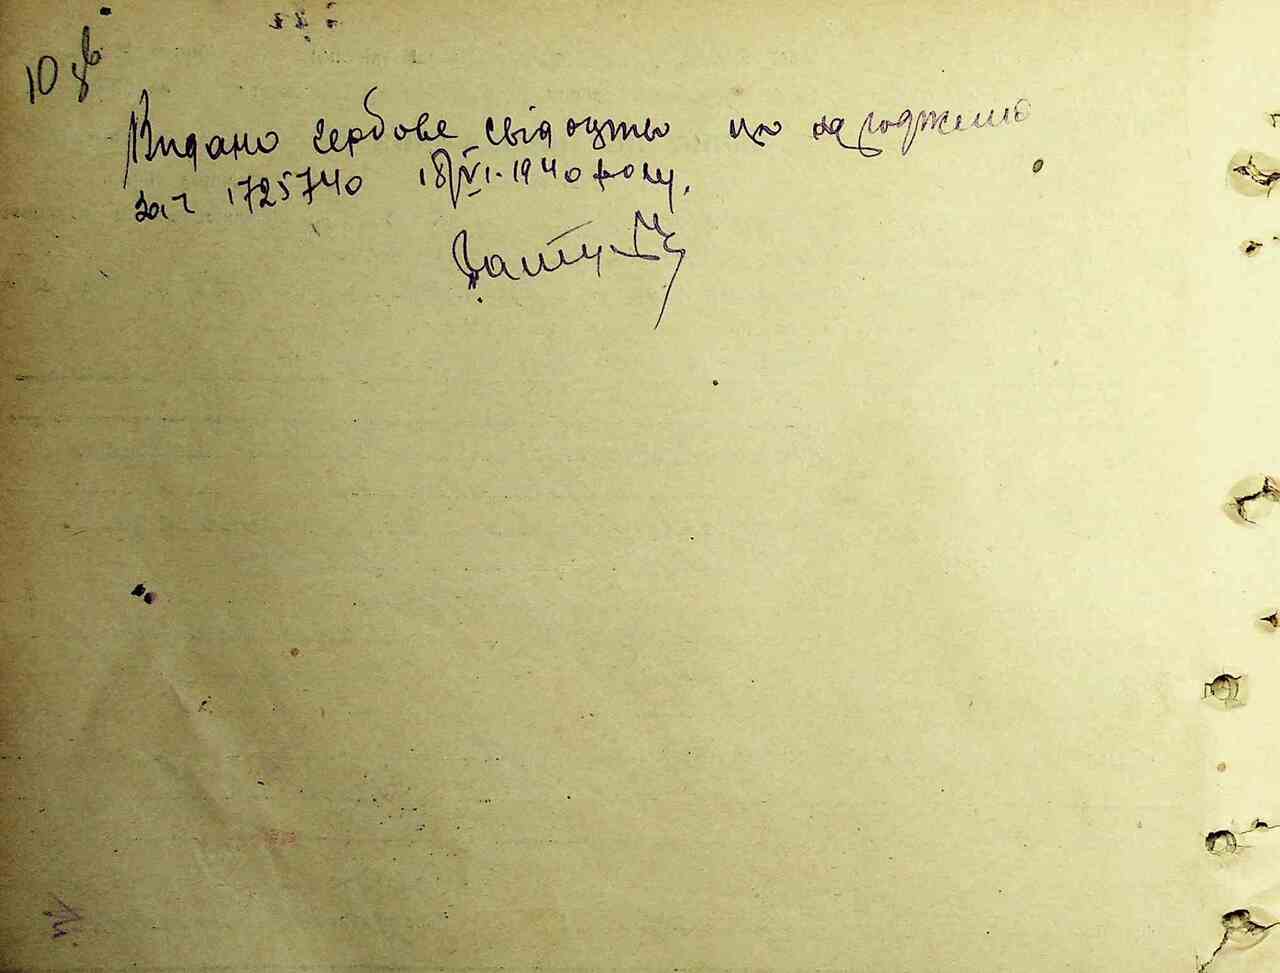 10 зв
Видано гербове свідоцтво про народження
за ч 1725740 18/VI-1940 року.